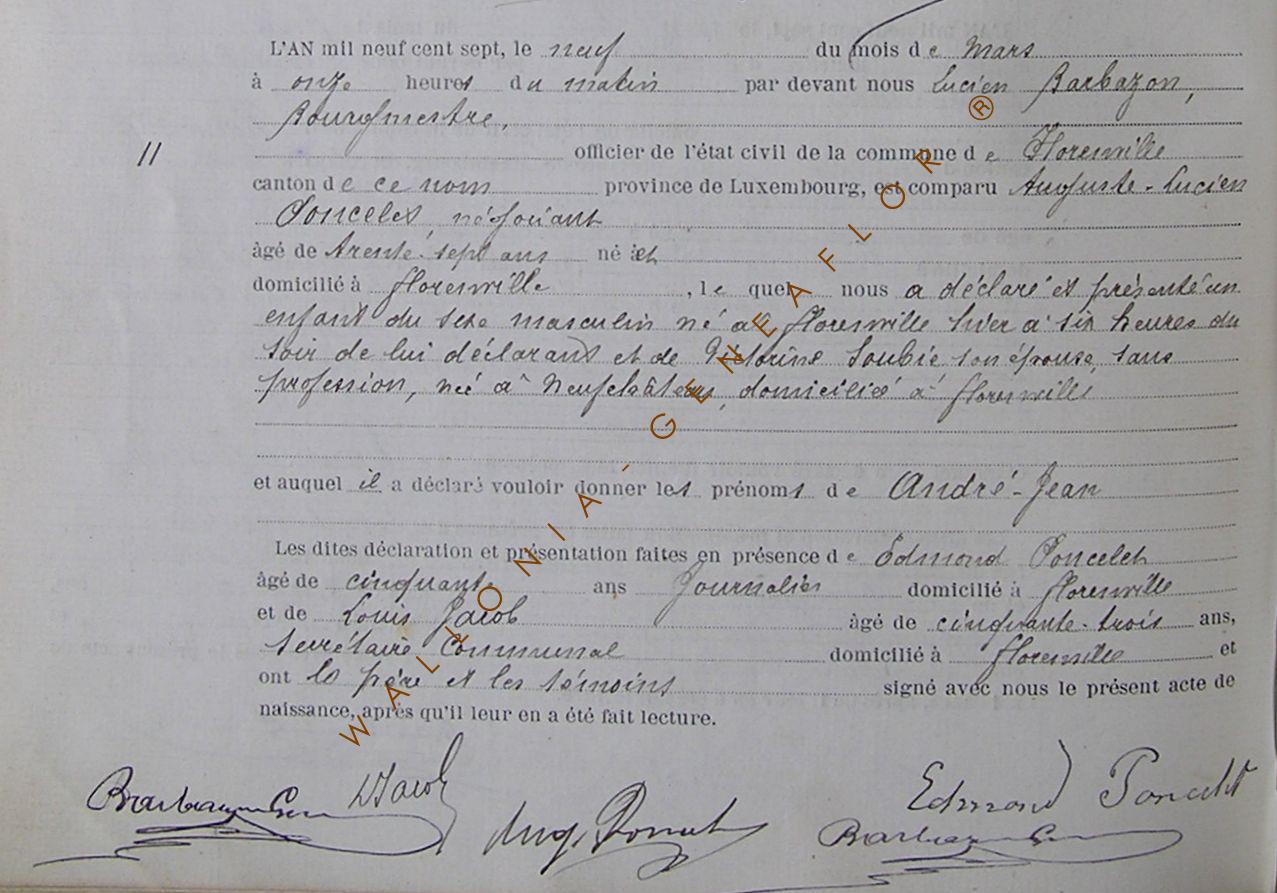 L'AN mil neuf cent sept, le neuf du mois de Mars
à onze heures du matin par devant nous Lucien Barbazon,
Bourgmestre,
11 officier de l'état civil de la commune de Florenville
canton de ce nom province de Luxembourg, est comparu Auguste-Lucien
Poncelet, négociant
âgé de trente-sept ans né et
domicilié à Florenville, lequel nous a déclaré et présenté un
enfant du sexe masculin né à Florenville hier à six heures du
soir de lui déclarant et de Victorine Soubie son épouse, sans
profession, née à Neufchâteau, domiciliée à Florenville
et auquel il a déclaré vouloir donner les prénoms de André-Jean
Les dites déclaration et présentation faites en présence de Edmond Poncelet
âgé de cinquante ans Journalier domicilié à Florenville
et de Louis Jacob âgé de cinquante-trois ans,
Secrétaire Communal domicilié à Florenville et
ont le père et les témoins signé avec nous le présent acte de
naissance, après qu'il leur en a été fait lecture.
WALLONIA-GENEAFLOR ®
Barbazon LJacob Aug. Poncelet Edmond Poncelet
Barbazon